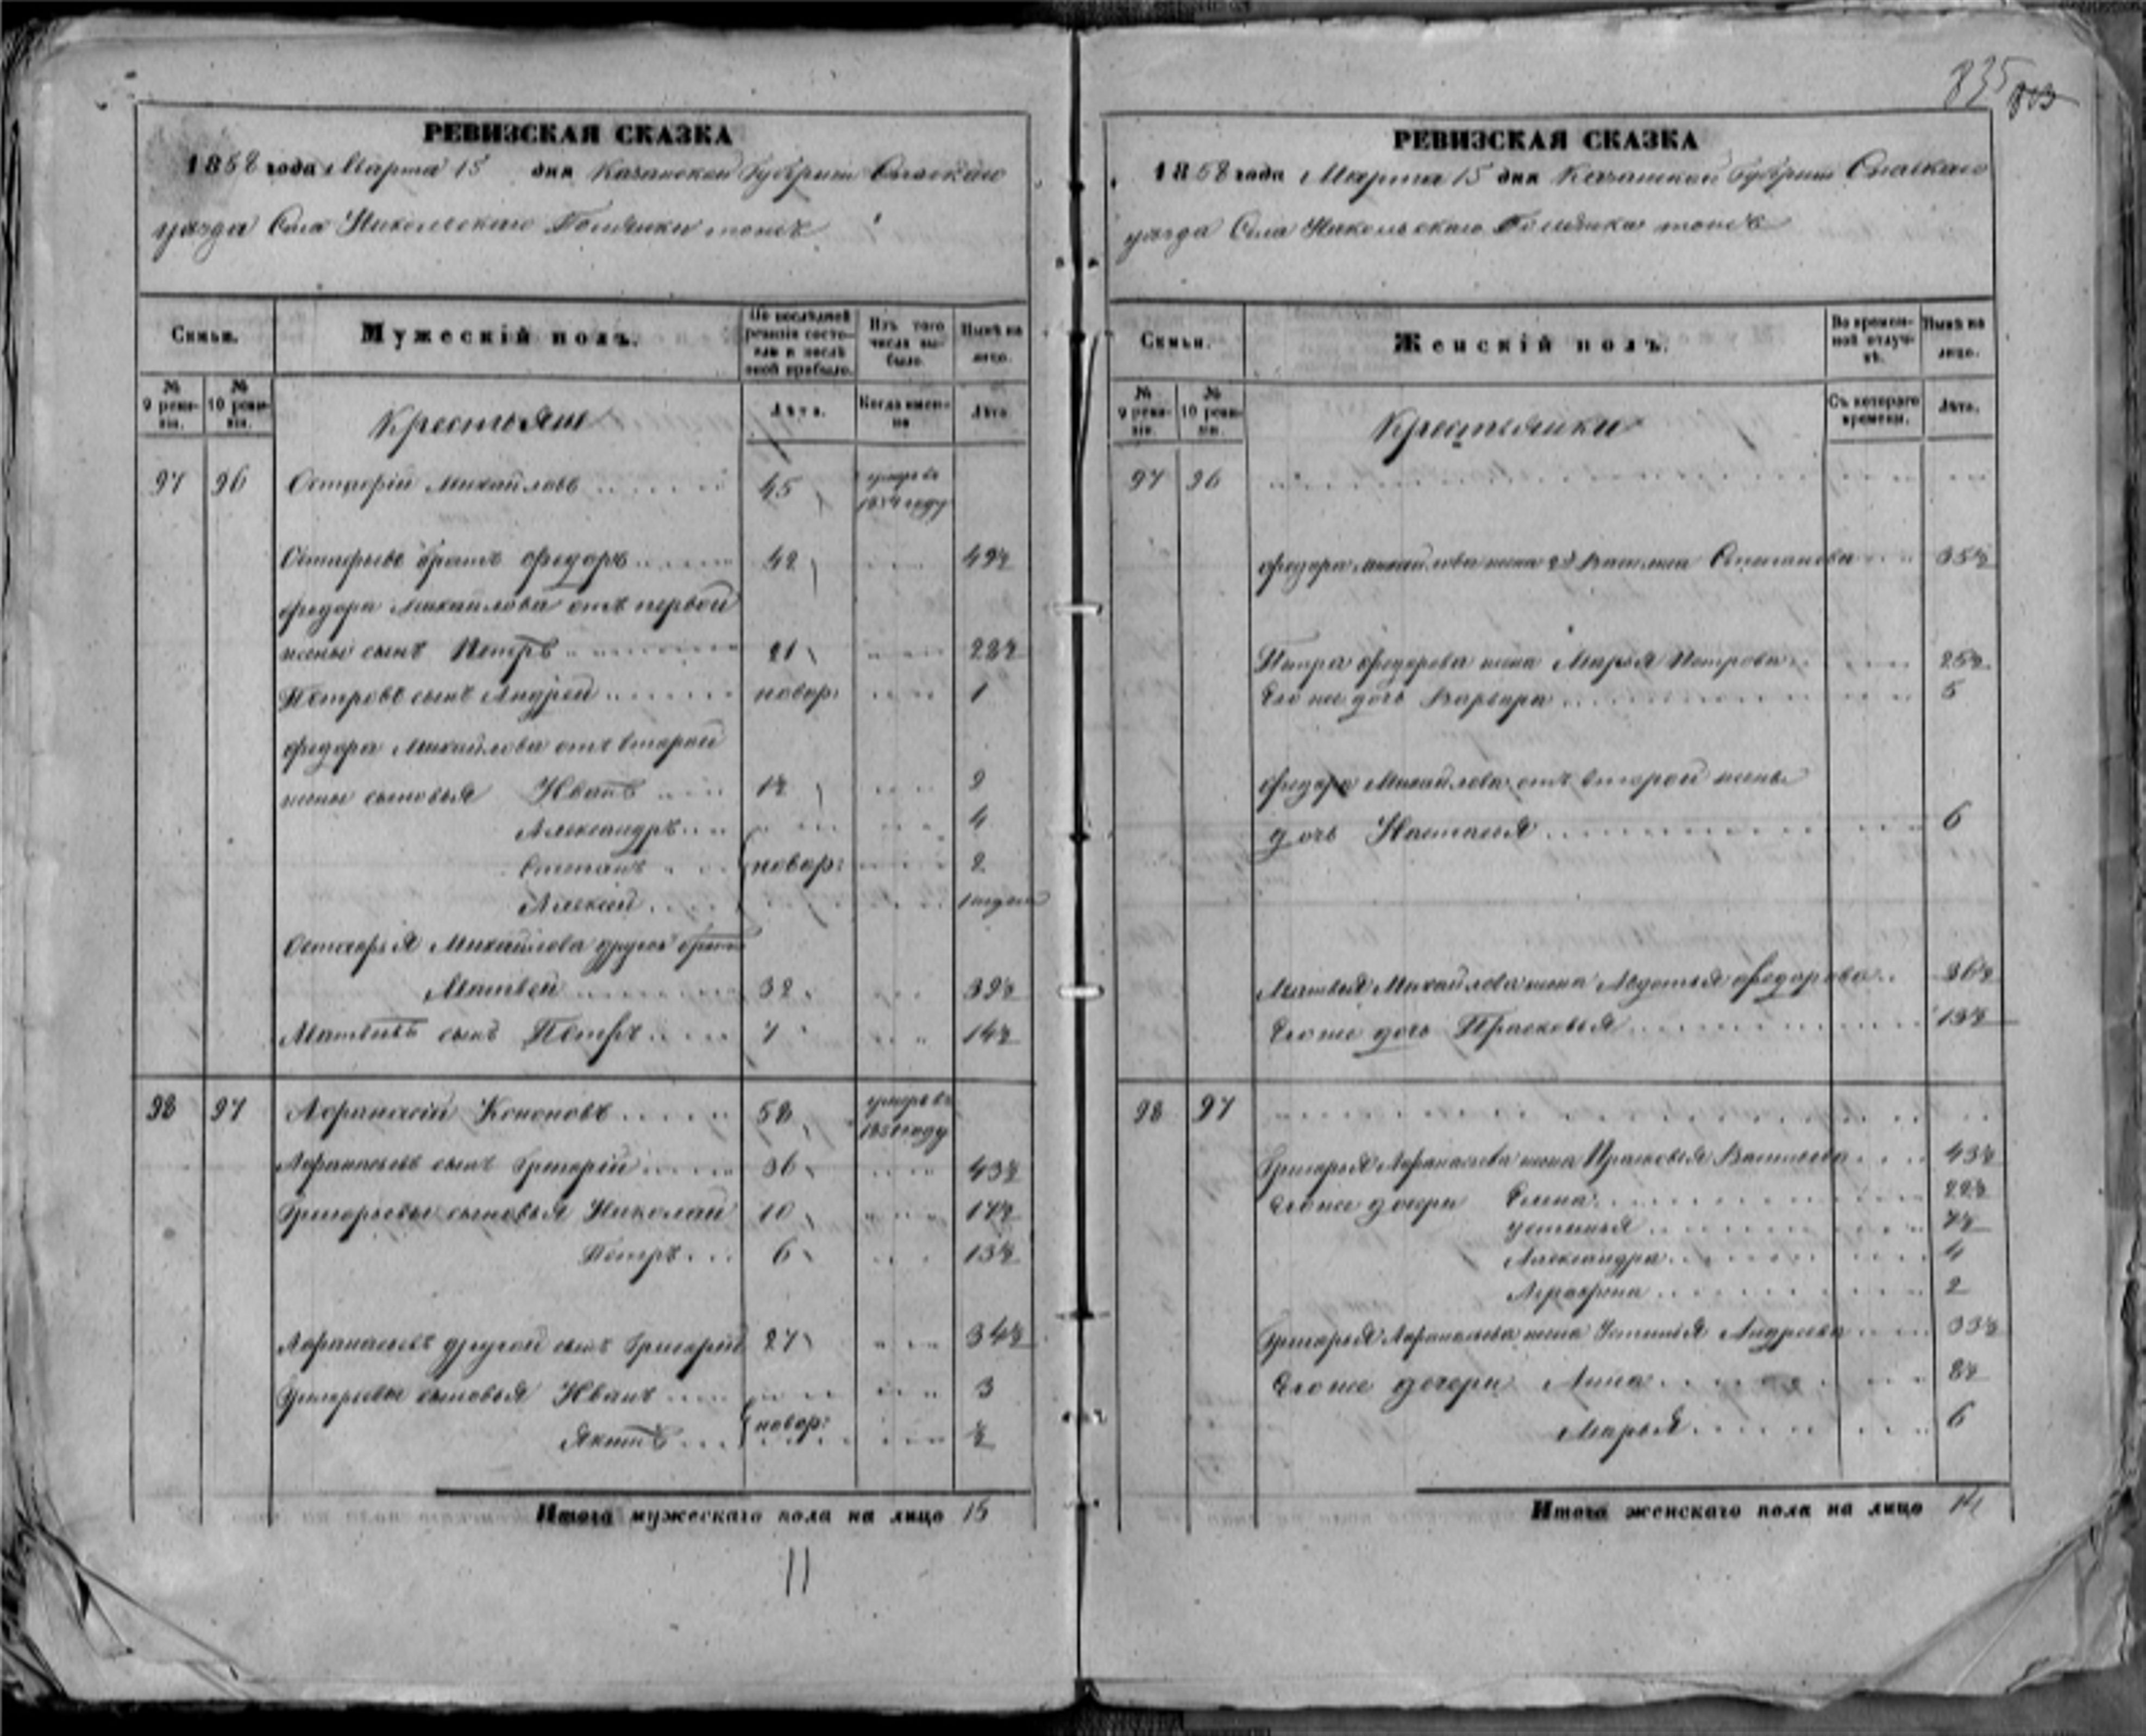 835 803
РЕВИЗСКАЯ СКАЗКА
1858 года Марта 15 дня Казанской Губернии Спаскаго
уезда Села Никольскаго
Семьи.
Мужескій полъ.
По послѣдней ревизіи состояло и послѣ оной прибыло.
Изъ того числа выбыло.
Нынѣ на лицо.
№ 9 ревизіи.
№ 10 ревизіи.
Крестьяне
Лѣта.
Когда именно
Лѣта
97 96 Остафій Михайловъ 45 умеръ въ 1854 году
Остафьевъ братъ Федоръ 42 49½
Федора Михайлова отъ первой
жены сынъ Петръ 21 28½
Петровъ сынъ Андрей новор: 1
Федора Михайлова отъ второй
жены сыновья Иванъ 1½ 9
Александръ 4
Степанъ новор: 2
Алексей
Остафья Михайлова другой братъ
Матвей 32 39½
Матвеевъ сынъ Петръ 7 14½
98 97 Афанасій Кононовъ 58 умеръ въ году
Афанасьевъ сынъ Григорій 36 43½
Григорьевы сыновья Николай 10 17½
Петръ 6 13½
Афанасьевъ другой сынъ Григорій 27 34½
Григорьевы сыновья Иванъ 3
новор:
½
Итого мужескаго пола на лицо 15
11
РЕВИЗСКАЯ СКАЗКА
1858 года Марта 15 дня Казанской Губерніи Спаскаго
уезда Села Никольскаго
Семьи.
Женскій полъ.
Во временной отлучкѣ.
Нынѣ на лицо.
№ 9 ревизіи.
№ 10 ревизіи.
Крестьянки
Съ котораго времени.
Лѣта.
97 96
Федора Михайлова жена 2я Василиса Степанова 35½
Петра Федорова жена Марья Петрова 25½
Его же дочь Варвара 5
Федора Михайлова отъ второй жены
дочь Настасья 6
Матвея Михайлова жена Авдотья Федорова 36½
Его же дочь Прасковья 13½
98 97
Григорья Афанасьева жена Прасковья Васильева 43½
Его же дочери Елена 22½
Устинья 7½
Александра 4
Аграфена 2
Григорья Афанасьева жена Устинья Андреева 33½
Его же дочери Анна 8½
Марья 6
Итого женскаго пола на лицо 14